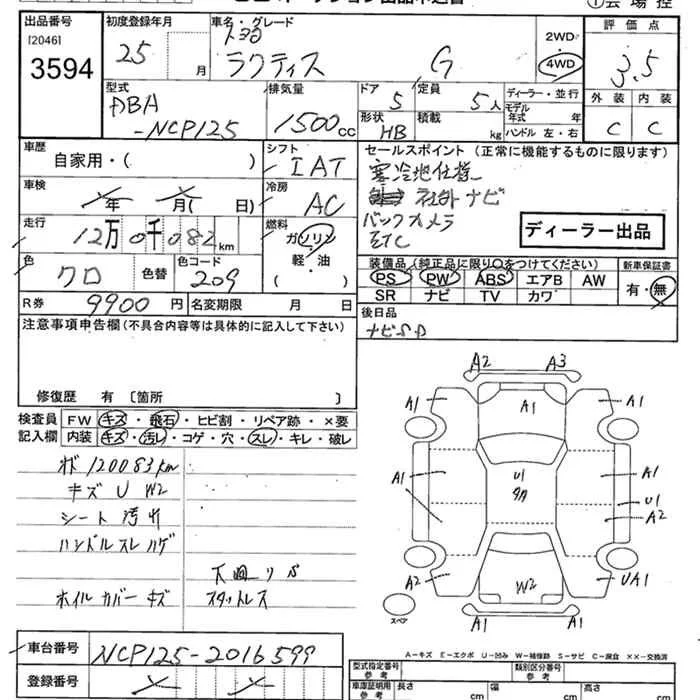 出品番号
[2046]
3594
初度登録年月
25 月
車名・グレード
トヨタ
ラクティス G
2WD・
4WD
評価点
3.5
外装 内装
C C
型式
DBA
-NCP125
排気量
1500cc
ドア 5
定員 5人
形状 HB
積載 kg
ディーラー・並行
モデル
年式 年
ハンドル 左・右
車歴
自家用・( )
シフト
IAT
セールスポイント (正常に機能するものに限ります)
寒冷地仕様
社外ナビ
バックカメラ
ETC
ディーラー出品
車検
年 月( 日)
冷房
AC
走行
12万0千082km
燃料
ガソリン
軽・油
( )
色
クロ
色替
色コード
209
装備品(純正品に限り○をつけてください)
PS PW ABS エアB AW
SR ナビ TV カワ
新車保証書
有・無
R券 9900円
名変期限 月 日
後日品
ナビSD
注意事項申告欄(不具合内容等は具体的に記入して下さい)
修復歴 有〔箇所 〕
検査員
記入欄
FW キズ・飛石・ヒビ割・リペア跡・×要
内装 キズ・汚レ・コゲ・穴・スレ・キレ・破レ
120083km
キズ U W2
シート汚レ
ハンドルスレハゲ
下回りS
ホイルカバーキズ スタットレス
A2 A3
A1 A1 A1
A1 U1 A1
U1
A2
A2 W2 UA1
A1 A1
スペア
A-キズ E-エクボ U-凹み W-補修跡 S-サビ C-腐食 ××-交換済
車台番号
NCP125-2016599
登録番号
型式指定番号
参考
類別区分番号
参考
車庫証明用
参考
長さ cm
幅 cm
高さ cm